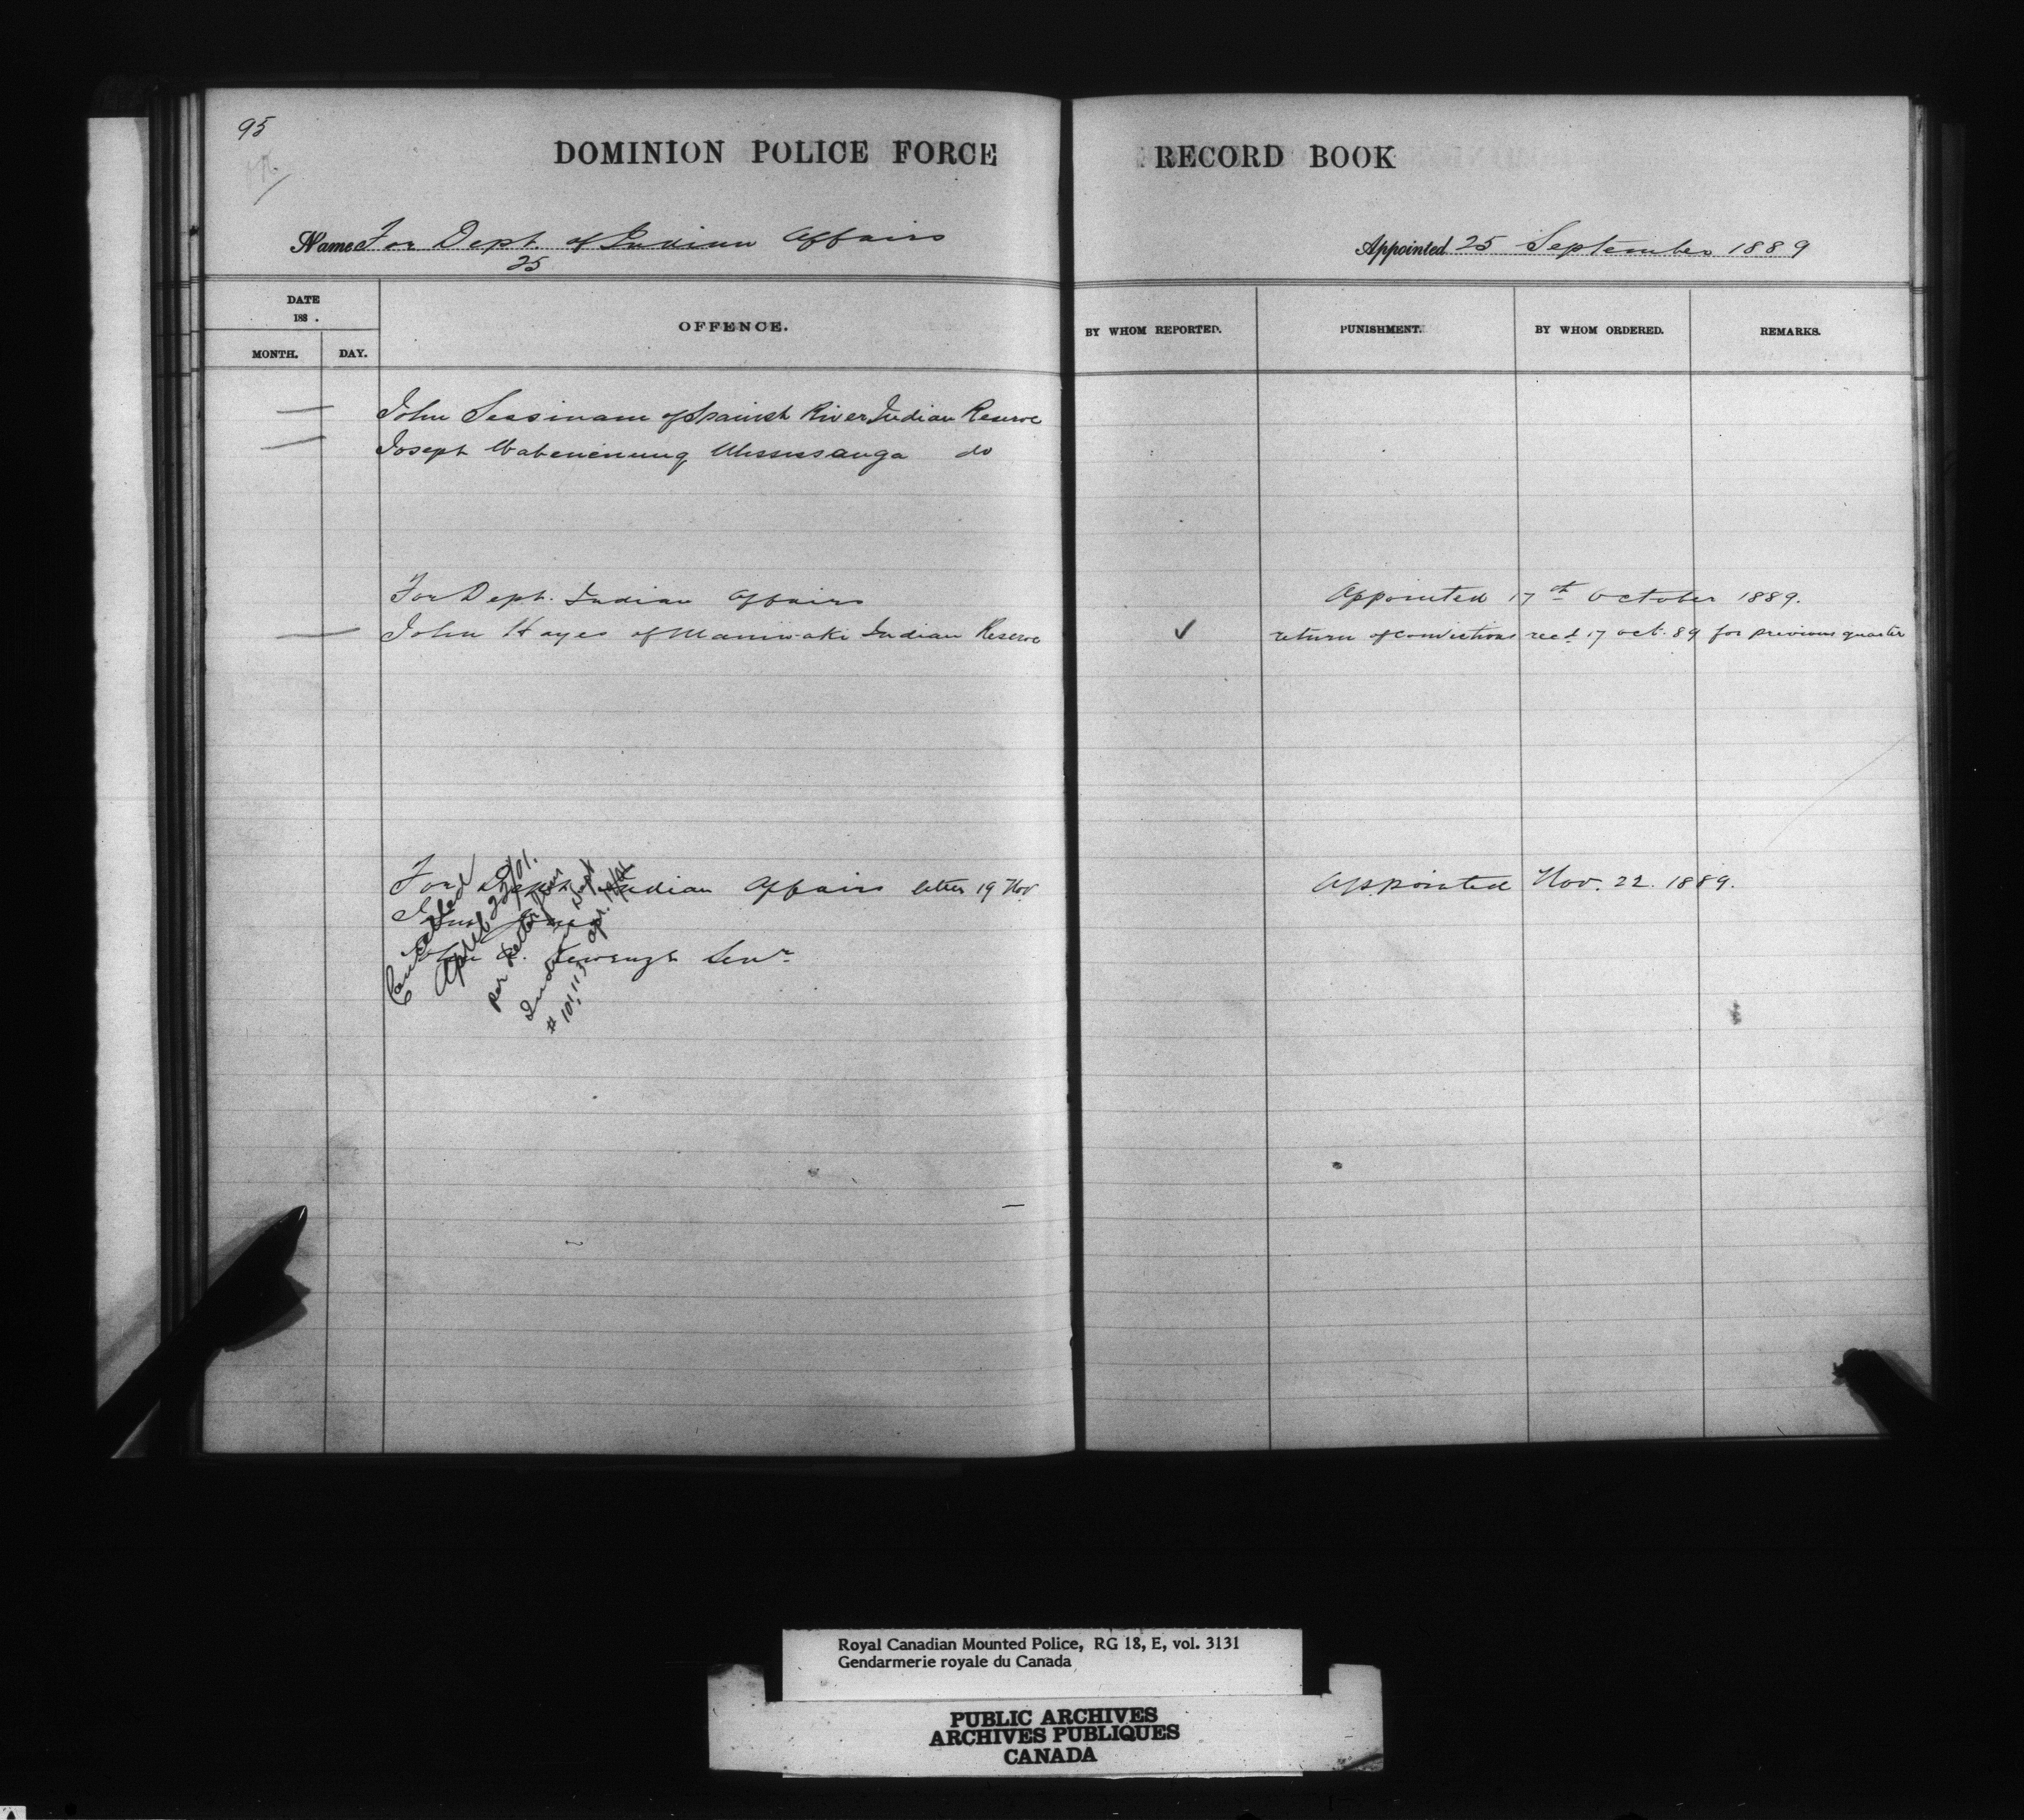 95
DOMINION POLICE FORCE RECORD BOOK
Name For Dept. of Indian Affairs
25
Appointed 25 September 1889
DATE
188 .
MONTH. DAY. OFFENCE. BY WHOM REPORTED. PUNISHMENT. BY WHOM ORDERED. REMARKS.
John Sessinam of Spanish River Indian Reserve
Joseph Mississauga do
For Dept. Indian Affairs Appointed 17th October 1889.
John Hayes of Maniwaki Indian Reserve ✓ return of convictions recd 17 oct. 89 for previous quarter
For Dept. Indian Affairs letter 19 Nov. Appointed Nov. 22. 1889.
Senr
Cancelled
April 22/01.
per letter from
Indian Dept
# 101,113 apr. 19/01
Royal Canadian Mounted Police, RG 18, E, vol. 3131
Gendarmerie royale du Canada
PUBLIC ARCHIVES
ARCHIVES PUBLIQUES
CANADA